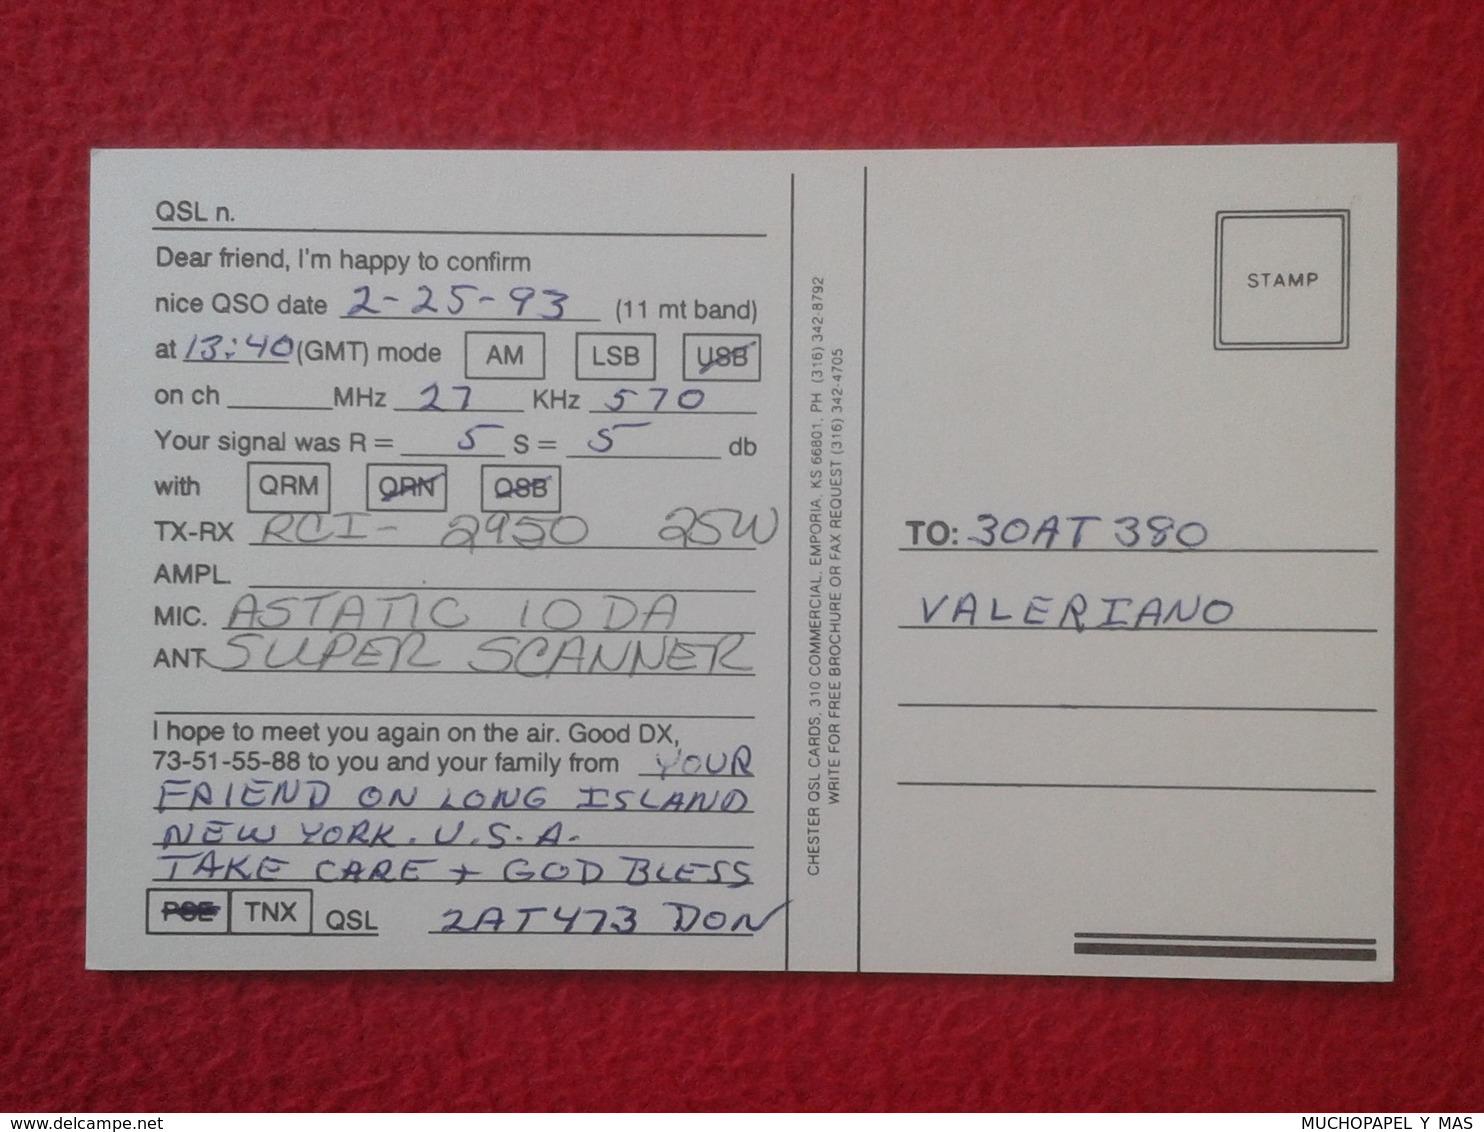 QSL n.
Dear friend, I'm happy to confirm
nice QSO date 2-25-93 (11 mt band)
at 13:40 (GMT) mode AM LSB USB
on ch MHz 27 KHz 570
Your signal was R = 5 S = 5 db
with QRM QRN QSB
TX-RX RCI-2950 25W
AMPL.
MIC. ASTATIC 10DA
ANT. SUPER SCANNER
I hope to meet you again on the air. Good DX,
73-51-55-88 to you and your family from YOUR
FRIEND ON LONG ISLAND
NEW YORK. U.S.A.
TAKE CARE + GOD BLESS
PSE TNX QSL 2AT473 DON
CHESTER QSL CARDS, 310 COMMERCIAL, EMPORIA, KS 66801, PH (316) 342-8792
WRITE FOR FREE BROCHURE OR FAX REQUEST (316) 342-4705
STAMP
TO: 30AT 380
VALERIANO
www.delcampe.net
MUCHOPAPEL Y MAS